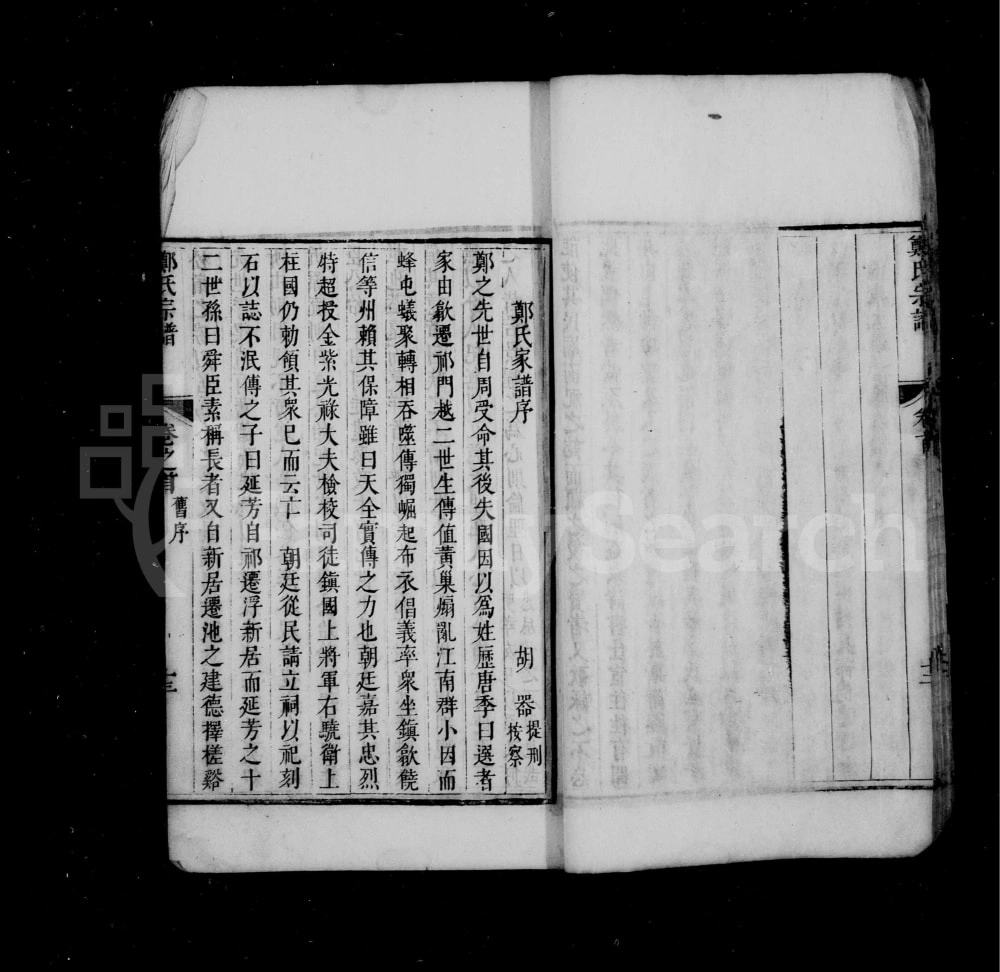 鄭氏宗譜
卷首
十二
鄭氏家譜序
胡器提刑按察
鄭之先世自周受命其後失國因以爲姓歷唐季曰選者
家由歙遷祁門越二世生傳值黃巢煽亂江南群小因而
蜂屯蟻聚轉相吞噬傳獨崛起布衣倡義率衆坐鎮歙饒
信等州賴其保障雖曰天全實傳之力也朝廷嘉其忠烈
特超授金紫光祿大夫檢校司徒鎮國上將軍右驍衛上
柱國仍勅領其衆已而云亡 朝廷從民請立祠以祀刻
石以誌不泯傳之子曰延芳自祁遷浮新居而延芳之十
二世孫曰舜臣素稱長者又自新居遷池之建德擇槎谿
鄭氏宗譜
卷之首
舊序
十三
FamilySearch